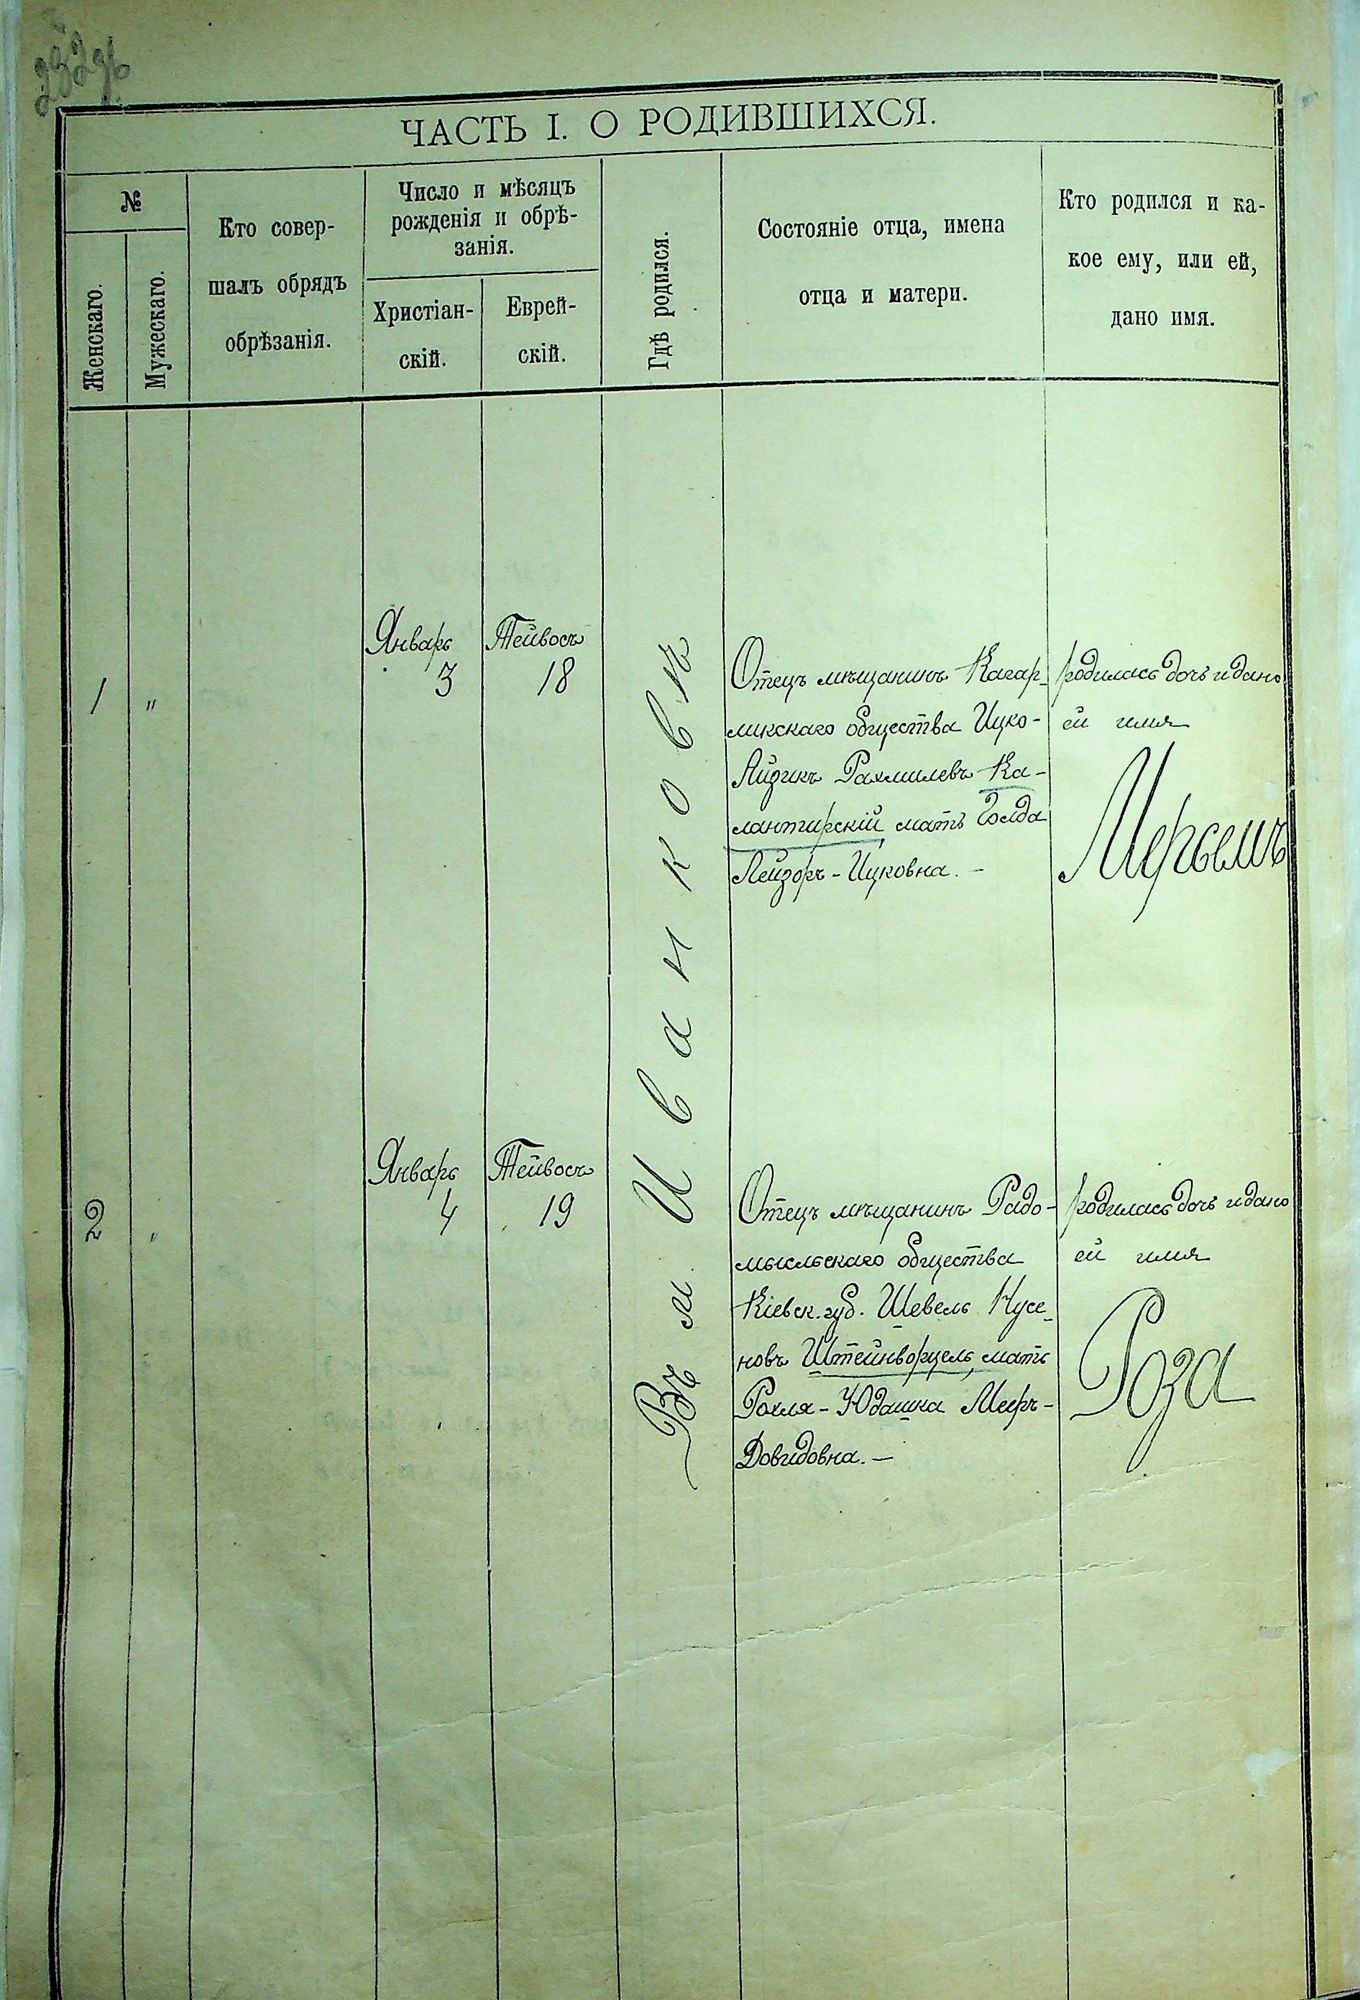 ЧАСТЬ I. О РОДИВШИХСЯ.
№
Женскаго.
Мужескаго.
Кто совер-
шалъ обрядъ
обрѣзанія.
Число и мѣсяцъ
рожденія и обрѣ-
занія.
Христіан-
скій.
Еврей-
скій.
Гдѣ родился.
Состояніе отца, имена
отца и матери.
Кто родился и ка-
кое ему, или ей,
дано имя.
1 "
Январь
3
Тейвосъ
18
Въ м. Иванковъ
Отецъ мѣщанинъ Кагар-
ликскаго общества Ицко-
Айзикъ Рахмилевъ Ка-
лантирскій мать Голда
Лейзоръ-Ицковна. -
родилась дочь и дано
ей имя
Мерьемъ
2 "
Январь
4
Тейвосъ
19
Отецъ мѣщанинъ Радо-
мысльскаго общества
Кіевск. губ. Шевель Нусе-
новъ Штейнворцель, мать
Рохля-Юдашка Мееръ-
Довидовна. —
родилась дочь и дано
ей имя
Роза